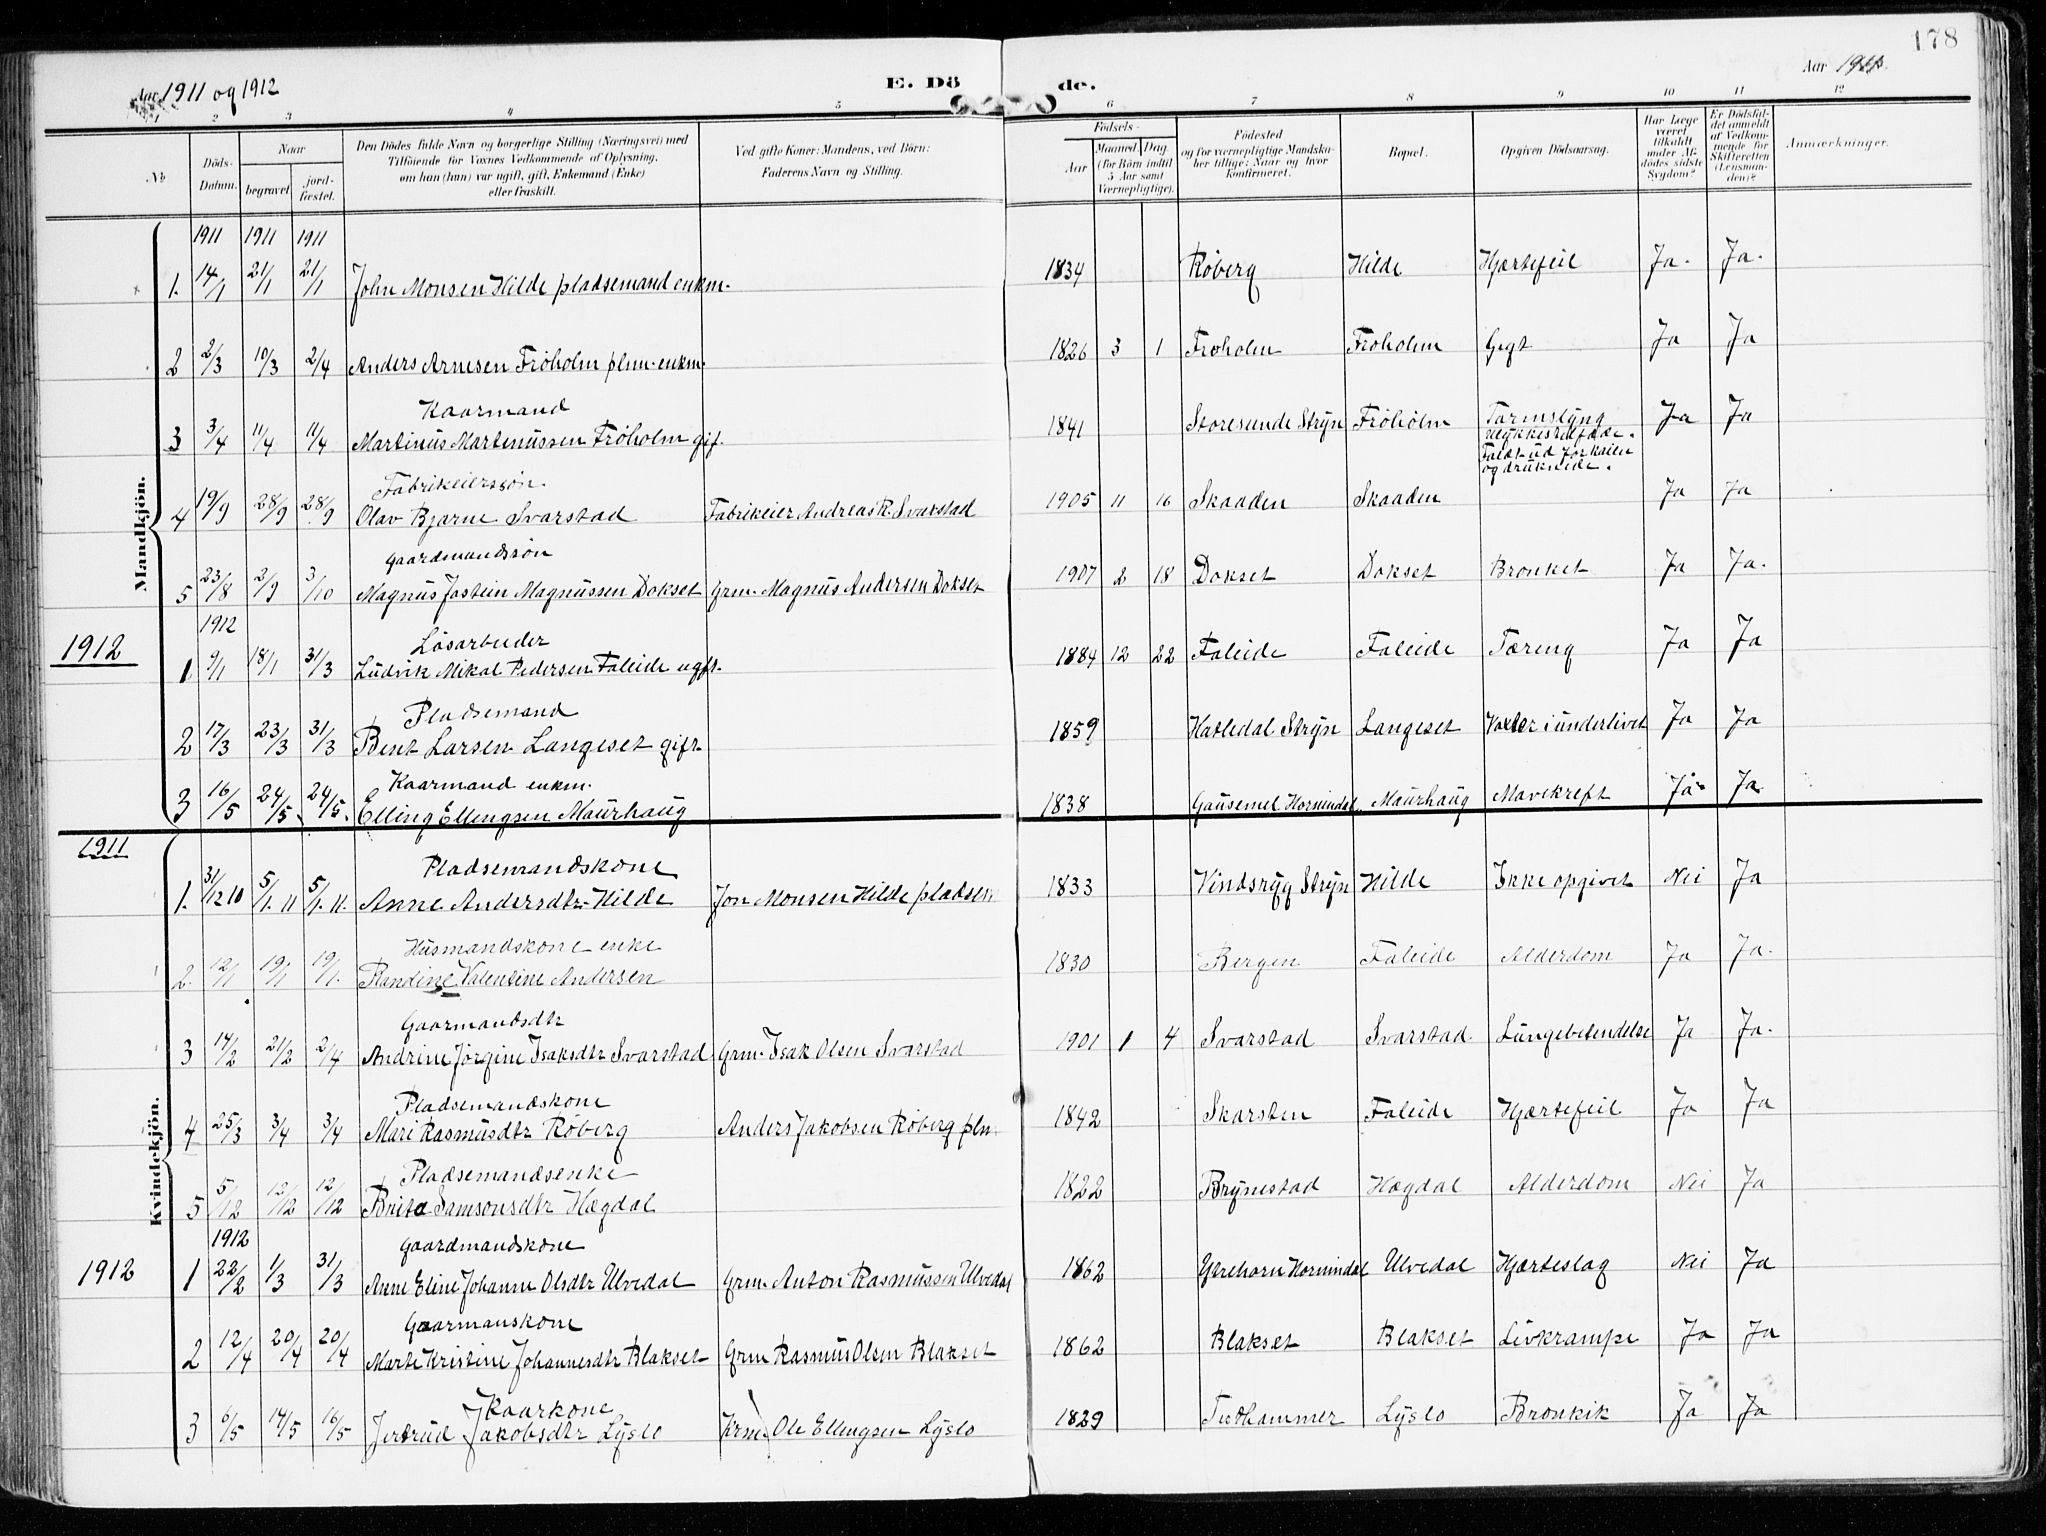 178
Aar 1911 og 1912
E. Dö de.
Aar 19
1 2 3 4 5 6 7 8 9 10 11 12
No
Döds-Datum.
Naar
begravet
jord-fæstet.
Den Dödes fulde Navn og borgerlige Stilling (Næringsvei) med
Tilföiende for Voxnes Vedkommende af Oplysning,
om han (hun) var ugift, gift, Enkemand (Enke)
eller fraskilt.
Ved gifte Koner: Mandens, ved Börn:
Faderens Navn og Stilling.
Födsels-
Aar
Maaned Dag.
(för Börn indtil
5 Aar samt
Værnepligtige).
Födested
og for værnepligtige Mandska-
ber tillige: Naar og hvor
konfirmeret.
Bopæl.
Opgiven Dödsaarsag.
Har Læge
været
tilkaldt
under Af-
dödes sidste
Sygdom?
Er Dödsfal-
det anmeldt
af Vedkom-
mende for
Skifteretten
(Lensman-
den)?
Anmærkninger.
Mandkjön.
1911 1911 1911
1. 14/1 21/1 21/1 John Monsen Hilde pladsemand enkm. 1834 Röberg Hilde Hjertefeil Ja. Ja.
2 2/3 10/3 2/4 Anders Arnesen Fröholm plm. enkm. 1826 3 1 Froholm Froholm Gigt Ja Ja
Kaarmand
3 3/4 11/4 11/4 Martinus Martinussen Fröholm gif. 1841 Storesunde Stryn Fröholm Tarmslyng Ja Ja
Ulykkestilfælde.
Faldt ud for kaien
og druknede.
Fabrikeiersön.
4 19/9 28/9 28/9 Olav Bjarne Svarstad Fabrikeier Andreas R. Svarstad 1905 11 16 Skaaden Skaaden Ja Ja
Gaardmandssön
5 23/8 2/9 3/10 Magnus Jostein Magnussen Dokset Grm. Magnus Andersen Dokset 1907 2 18 Dokset Dokset Bronket Ja Ja.
1912
1912 Lösarbeider
1 9/1 18/1 31/3 Ludvik Mikal Pedersen Faleide ugft. 1884 12 22 Faleide Faleide Tæring Ja Ja
Pladsemand
2 17/3 23/3 31/3 Bent Larsen Langeset gift 1859 Hatledal Stryn Langeset Vækster i underlivet Ja Ja
Kaarmand enkm.
3 16/5 24/5. 24/5. Elling Ellingsen Maurhaug 1838 Gausemel Hornindal Maurhaug Mavekreft Ja. Ja
1911
Kvindekjön.
Pladsemandskone
1. 31/12 10 5/1. 11 5/1. 11. Anne Andersdtr. Hilde Jon Monsen Hilde pladsem 1833 Vindsryg Stryn Hilde Ikke opgivet Nei Ja
Husmandskone enke
2. 12/1 19/1 19/1. Randine Valentine Andersen 1830 Bergen Faleide Alderdom Ja Ja.
Gaarmandsdtr
3 14/2 21/2 2/4 Andrine Jörgine Isaksdtr Svarstad. Grm. Isak Olsen Svarstad 1901 1 4 Svarstad Svarstad. Lungebetendelse Ja Ja.
Pladsemandskone
4 25/3 3/4 3/4 Mari Rasmusdtr Röberg Anders Jakobsen Röberg plm. 1842 Skarsten Faleide Hjertefeil Ja Ja
Pladsemandsenke
5 5/12 12/12 12/12 Brita Samsonsdtr Hægdal 1822 Brynestad Hægdal Alderdom Nei Ja
1912
1912 Gaardmandskone
1 22/2 1/3 31/3 Anne Eline Johanne Olsdtr Ulvedal Grm. Anton Rasmussen Ulvedal 1862 Gjerehorn Hornindal Ulvedal Hjerteslag Nei Ja
Gaarmanskone
2 12/4 20/4 20/4 Marte Kristine Johannesdtr Blakset Grm Rasmus Olsen Blakset 1862 Blakset Blakset Livkrampe Ja Ja
Kaarkone
3 6/5 14/5 16/5 Jertrud Jakobsdtr Lyslo Krm. Ole Ellingsen Lyslo 1829 Tisthammer Lyslo Bronkik Ja Ja